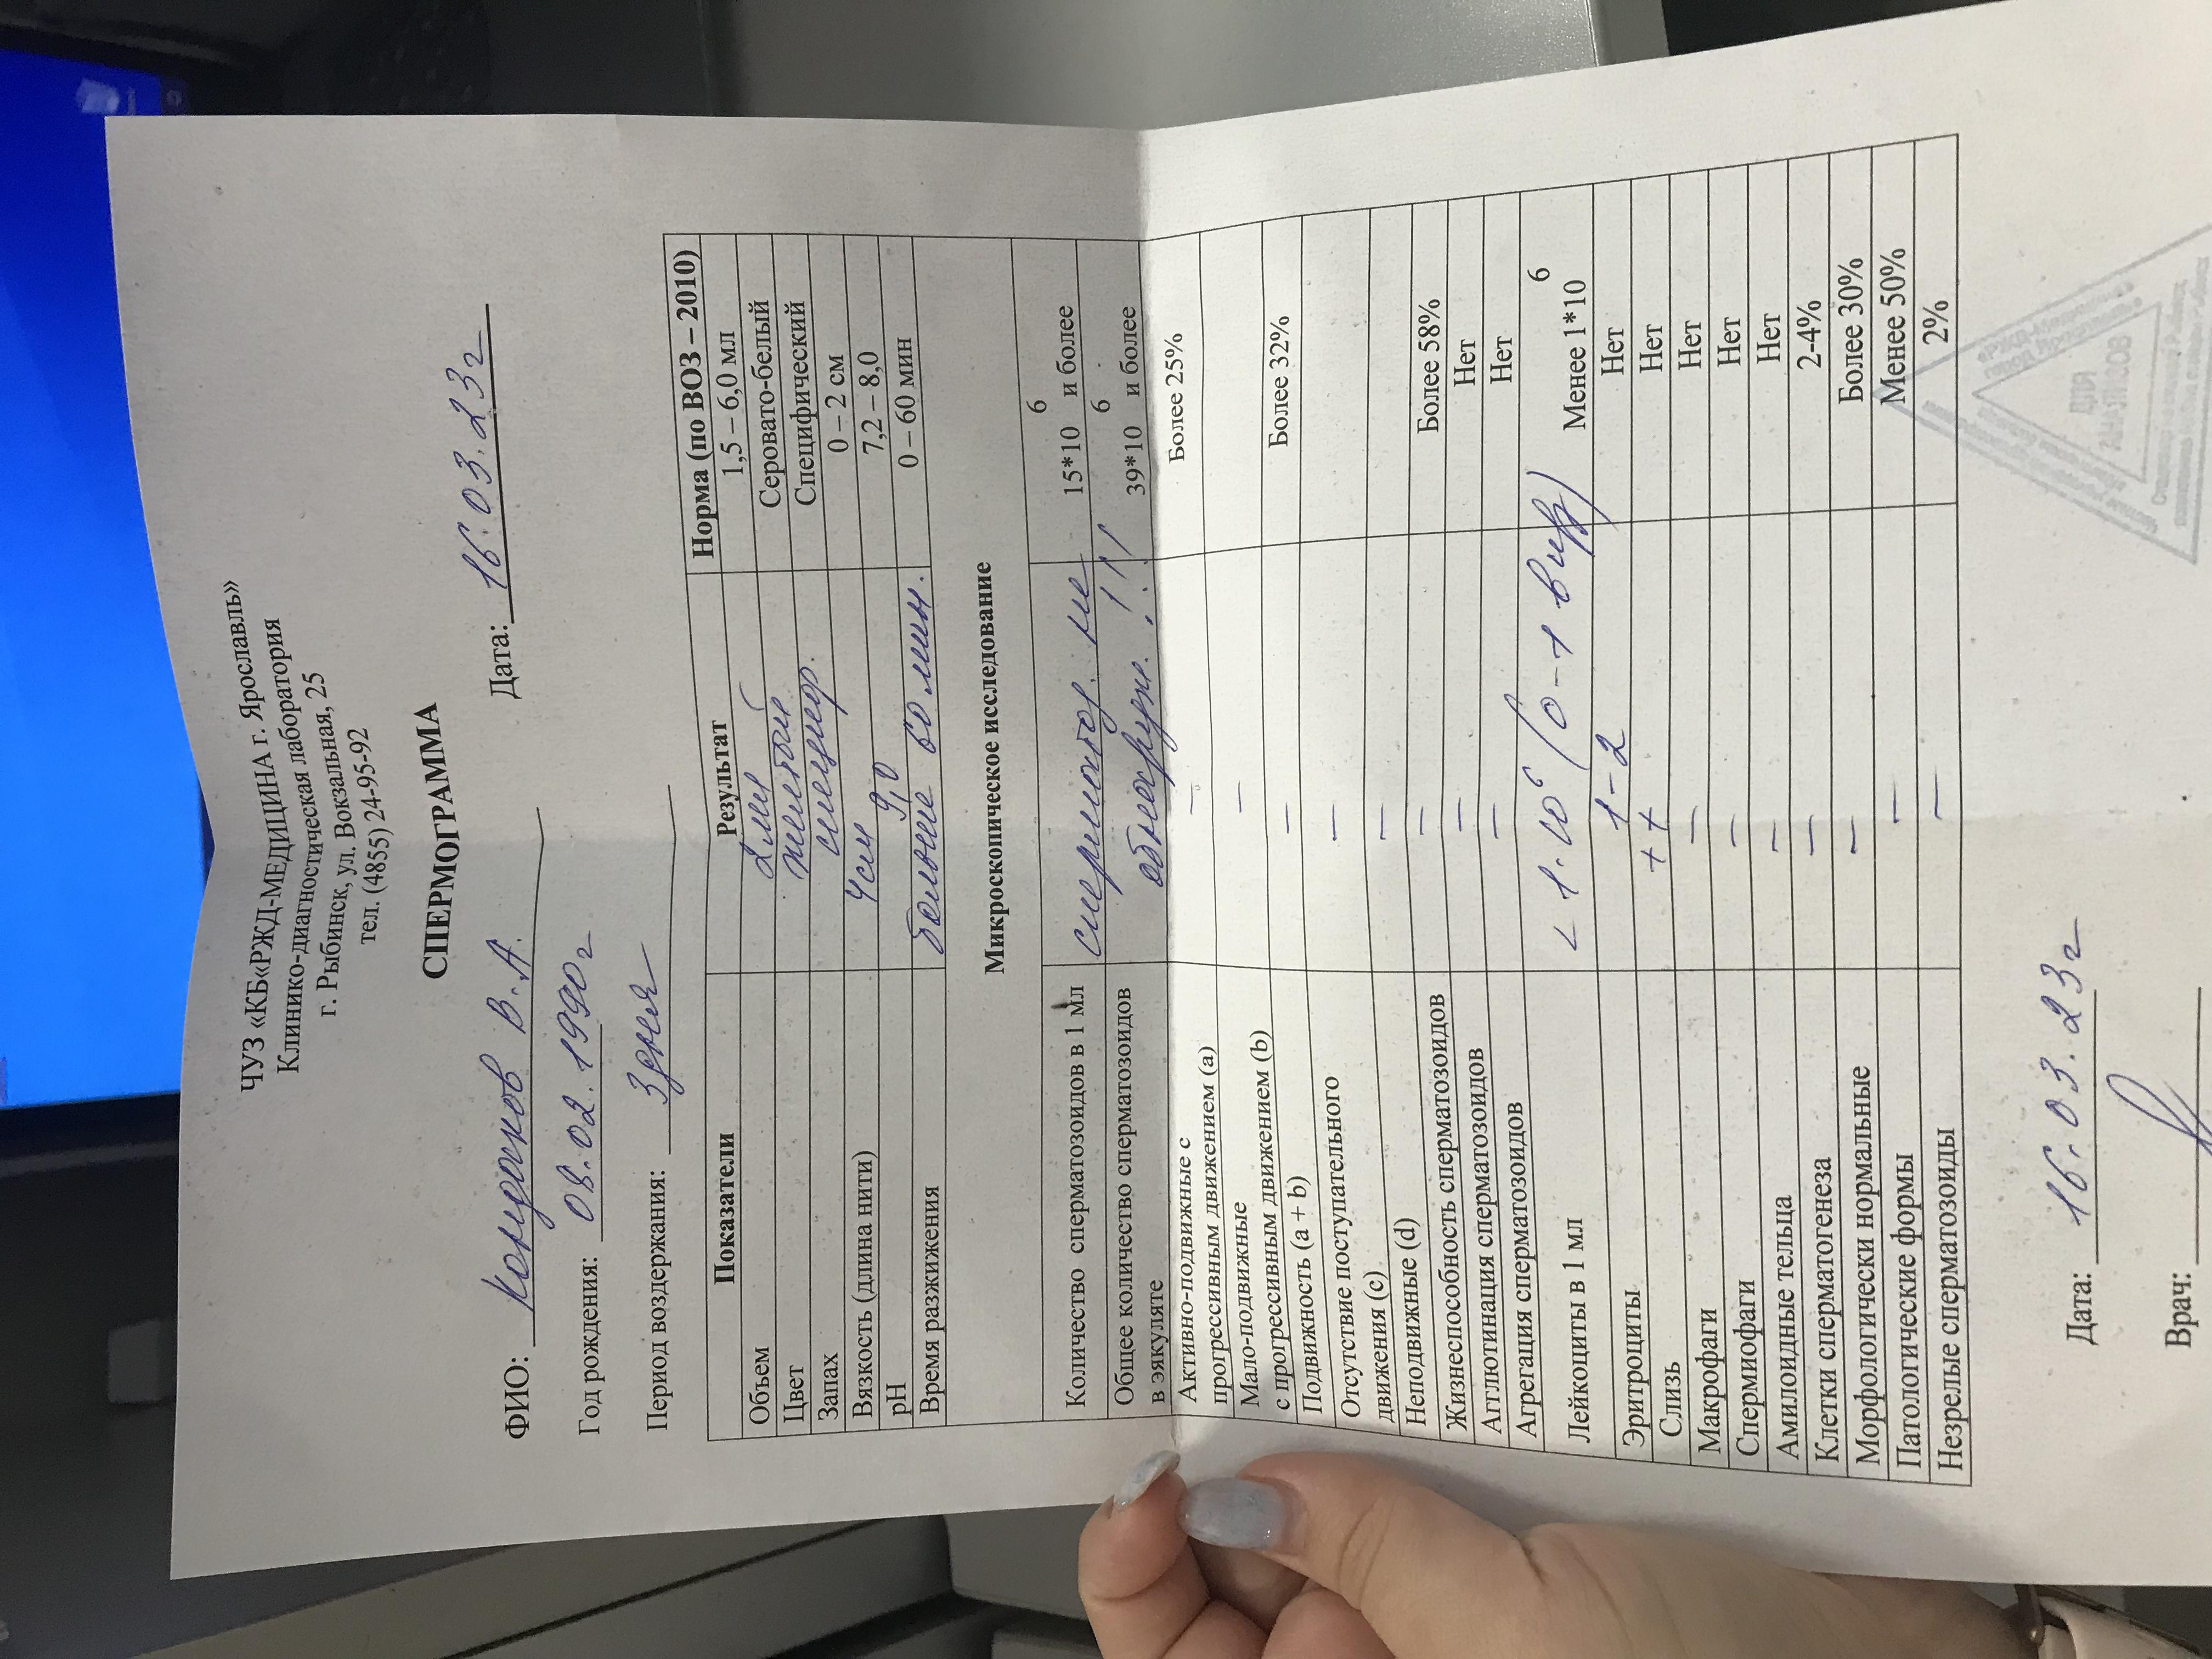 ЧУЗ «КБ«РЖД-МЕДИЦИНА г. Ярославль»
Клинико-диагностическая лаборатория
г. Рыбинск, ул. Вокзальная, 25
тел. (4855) 24-95-92
СПЕРМОГРАММА
Дата: 16.03.23г
ФИО: В.А.
Год рождения: 08.02.1990г
Период воздержания: 3дня
Показатели Результат Норма (по ВОЗ – 2010)
Объем 2мл 1,5 – 6,0 мл
Цвет желтый Серовато-белый
Запах специфр. Специфический
Вязкость (длина нити) 4см 0 – 2 см
pH 9,0 7,2 – 8,0
Время разжижения больше 60 мин. 0 – 60 мин
Микроскопическое исследование
Количество сперматозоидов в 1 мл сперматоз. не 15*10 6 и более
Общее количество сперматозоидов в эякуляте обнаруж. !!! 39*10 6 и более
Активно-подвижные с
прогрессивным движением (a) – Более 25%
Мало-подвижные
с прогрессивным движением (b) –
Подвижность (a + b) – Более 32%
Отсутствие поступательного
движения (c) –
Неподвижные (d) –
Жизнеспособность сперматозоидов – Более 58%
Агглютинация сперматозоидов – Нет
Агрегация сперматозоидов – Нет
Лейкоциты в 1 мл < 1·10⁶ (0-1 в п/зр) Менее 1*10 6
Эритроциты 1-2 Нет
Слизь ++ Нет
Макрофаги – Нет
Спермиофаги – Нет
Амилоидные тельца – Нет
Клетки сперматогенеза – 2-4%
Морфологически нормальные – Более 30%
Патологические формы – Менее 50%
Незрелые сперматозоиды – 2%
Дата: 16.03.23г
Врач:
ДЛЯ
АНАЛИЗОВ